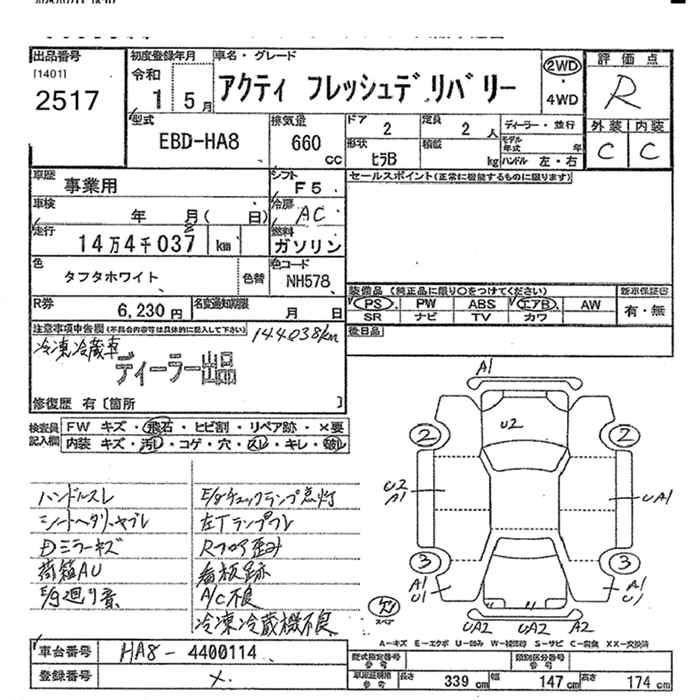 出品番号
[1401]
2517
初度登録年月
令和
1 5月
車名・グレード
アクティ フレッシュデリバリー
2WD
・
4WD
評価点
R
外装 内装
C C
型式
EBD-HA8
排気量
660
cc
ドア
2
定員
2 人
形状
ヒラB
積載
kg
ディーラー・並行
モデル年式
年
ハンドル 左・右
車歴
事業用
シフト
F5
セールスポイント(正常に機能するものに限ります)
車検
年 月( 日)
冷房
AC
走行
14万4千037 km
8
燃料
ガソリン
色
タフタホワイト
色替
色コード
NH578
R券
6,230円
名変通知期限
月 日
装備品(純正品に限り○をつけてください)
PS PW ABS エアB AW
SR ナビ TV カワ
新車保証書
有・無
後日品
注意事項申告欄(不具合内容等は具体的に記入して下さい)
144,038km
冷凍冷蔵車
ディーラー出品
修復歴 有〔箇所 〕
検査員記入欄
FW キズ・飛石・ヒビ割・リペア跡・×要
内装 キズ・汚レ・コゲ・穴・スレ・キレ・破レ
ハンドルスレ
シートヘタリ・ヤブレ
Dミラーキズ
荷箱AU
E/g廻り音
E/gチェックランプ点灯
左Tランプワレ
Rフロア歪み
看板跡
A/C不良
冷凍冷蔵機不良
A1
U2
2 2
U2
A1
UA1
3 3
A1
U1
A1
U1
スペア
UA2 UA2 A2
A-キズ E-エクボ U-凹み W-補修跡 S-サビ C-腐食 XX-交換済
車台番号
HA8-4400114
登録番号
×
型式指定番号
参考
類別区分番号
参考
車庫証明用
参考
長さ
339 cm
幅
147 cm
高さ
174 cm